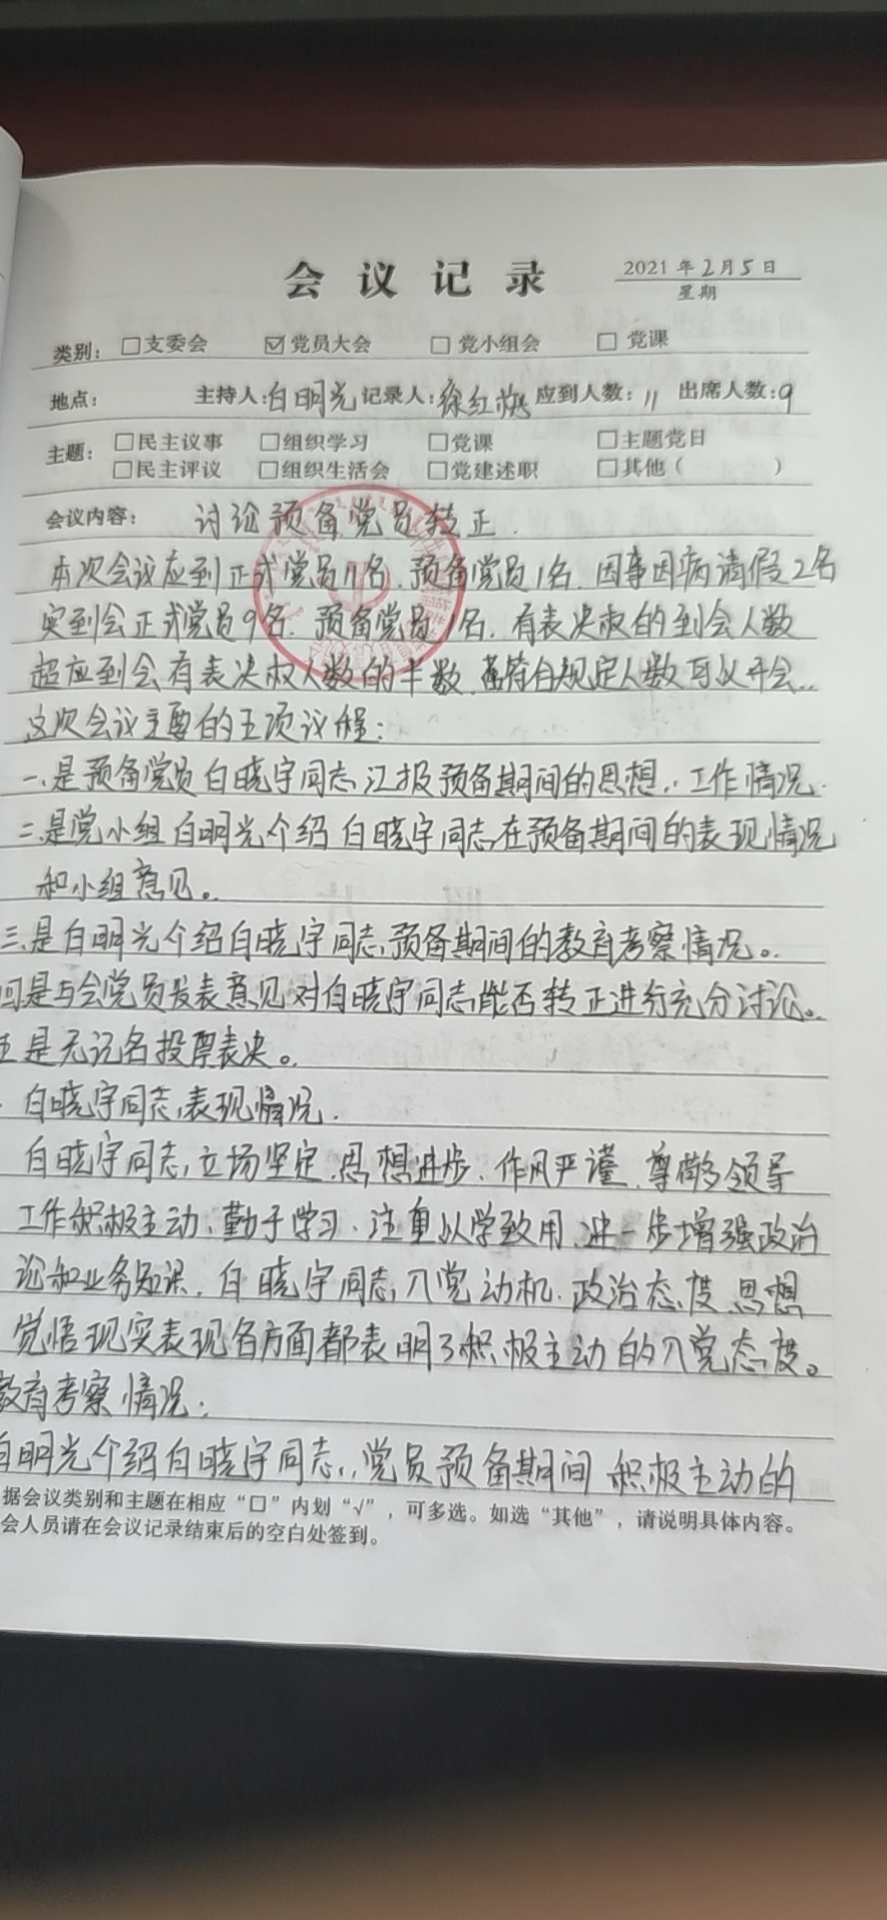 会议记录
2021年2月5日
星期
类别：□支委会 ☑党员大会 □党小组会 □党课
地点： 主持人：白明光 记录人：徐红 应到人数：11 出席人数：9
主题：□民主议事 □组织学习 □党课 □主题党日
□民主评议 □组织生活会 □党建述职 □其他（ ）
会议内容： 讨论预备党员转正.
本次会议应到正式党员11名、预备党员1名、因事因病请假2名
实到会正式党员9名、预备党员1名、有表决权的到会人数
超应到会有表决权人数的半数、符合规定人数可以开会..
这次会议主要的五项议程：
一、是预备党员白晓宇同志汇报预备期间的思想、工作情况.
二、是党小组白明光介绍白晓宇同志在预备期间的表现情况
和小组意见。
三是白明光介绍白晓宇同志预备期间的教育考察情况。
四是与会党员发表意见对白晓宇同志能否转正进行充分讨论。
五是无记名投票表决。
白晓宇同志表现情况.
白晓宇同志立场坚定、思想进步、作风严谨、尊领导
工作积极主动、勤于学习、注重以学致用、进一步增强政治
论和业务知识. 白晓宇同志入党动机、政治态度、思想
觉悟现实表现各方面都表明了积极主动的入党态度。
教育考察情况：
白明光介绍白晓宇同志、党员预备期间积极主动的
据会议类别和主题在相应“□”内划“√”，可多选。如选“其他”，请说明具体内容。
会人员请在会议记录结束后的空白处签到。